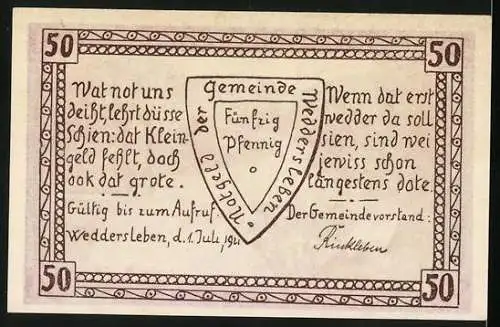 50
50
Wat not uns
deiht, lehrt düsse
Schien: dat Klein-
geld fehlt, doch
ook dat grote.
Gültig bis zum Aufruf.
Weddersleben, d. 1. Juli, 1921
Notgeld der Gemeinde Weddersleben.
Fünfzig
Pfennig
Wenn dat erst
wedder da soll
sien, sind wei
jewiss schon
längestens dote.
Der Gemeindevorstand:
50
50